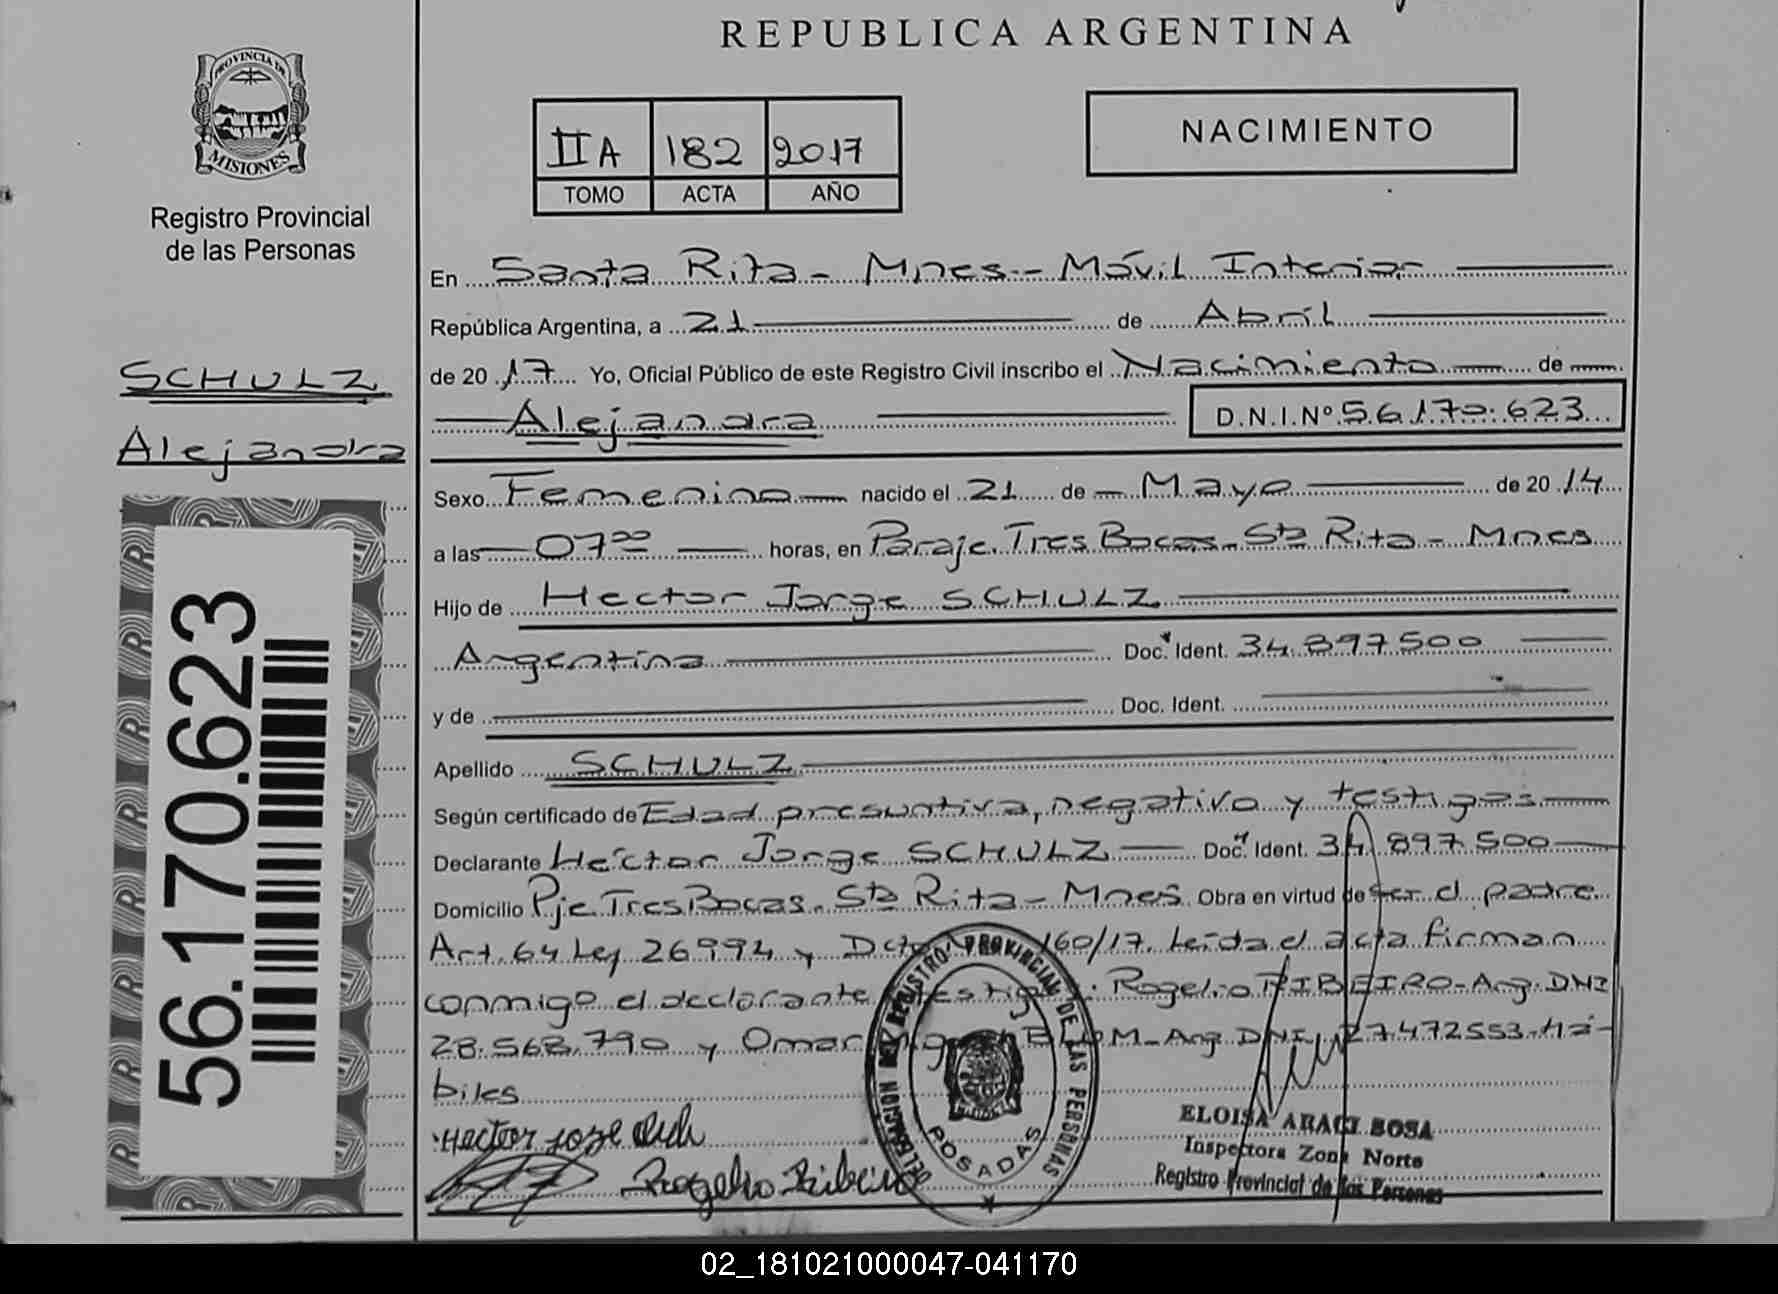 REPUBLICA ARGENTINA
PROVINCIA DE
MISIONES
Registro Provincial
de las Personas
IIA 182 2017
TOMO ACTA AÑO
NACIMIENTO
SCHULZ
Alejandra
56.170.623
En Santa Rita - Mnes - Móvil Interior
República Argentina, a 21 de Abril
de 2017 Yo, Oficial Público de este Registro Civil inscribo el Nacimiento de
Alejandra D.N.I.Nº 56.170.623
Sexo Femenino nacido el 21 de Mayo de 2014
a las 07 00 horas, en Paraje Tres Bocas - Sta Rita - Mnes
Hijo de Hector Jorge SCHULZ
Argentina Doc. Ident. 34.897.500
y de Doc. Ident.
Apellido SCHULZ
Según certificado de Edad presuntiva, negativo y testigos
Declarante Hector Jorge SCHULZ Doc. Ident. 34.897.500
Domicilio Pje. Tres Bocas - Sta Rita - Mnes Obra en virtud de ser el padre
Art. 64 Ley 26994 y 160/17. Leída el acta firman
conmigo el declarante Rogelio RIBEIRO - Arg. DNI
28.568.790 y Omar - Arg. DNI 27.472553 - Há-
biles
Hector
Rogelio Ribeiro
REGISTRO PROVINCIAL DE LAS PERSONAS
DELEGACION
POSADAS
ELOISA ARACI SOSA
Inspectora Zona Norte
Registro Provincial de las Personas
02_181021000047-041170